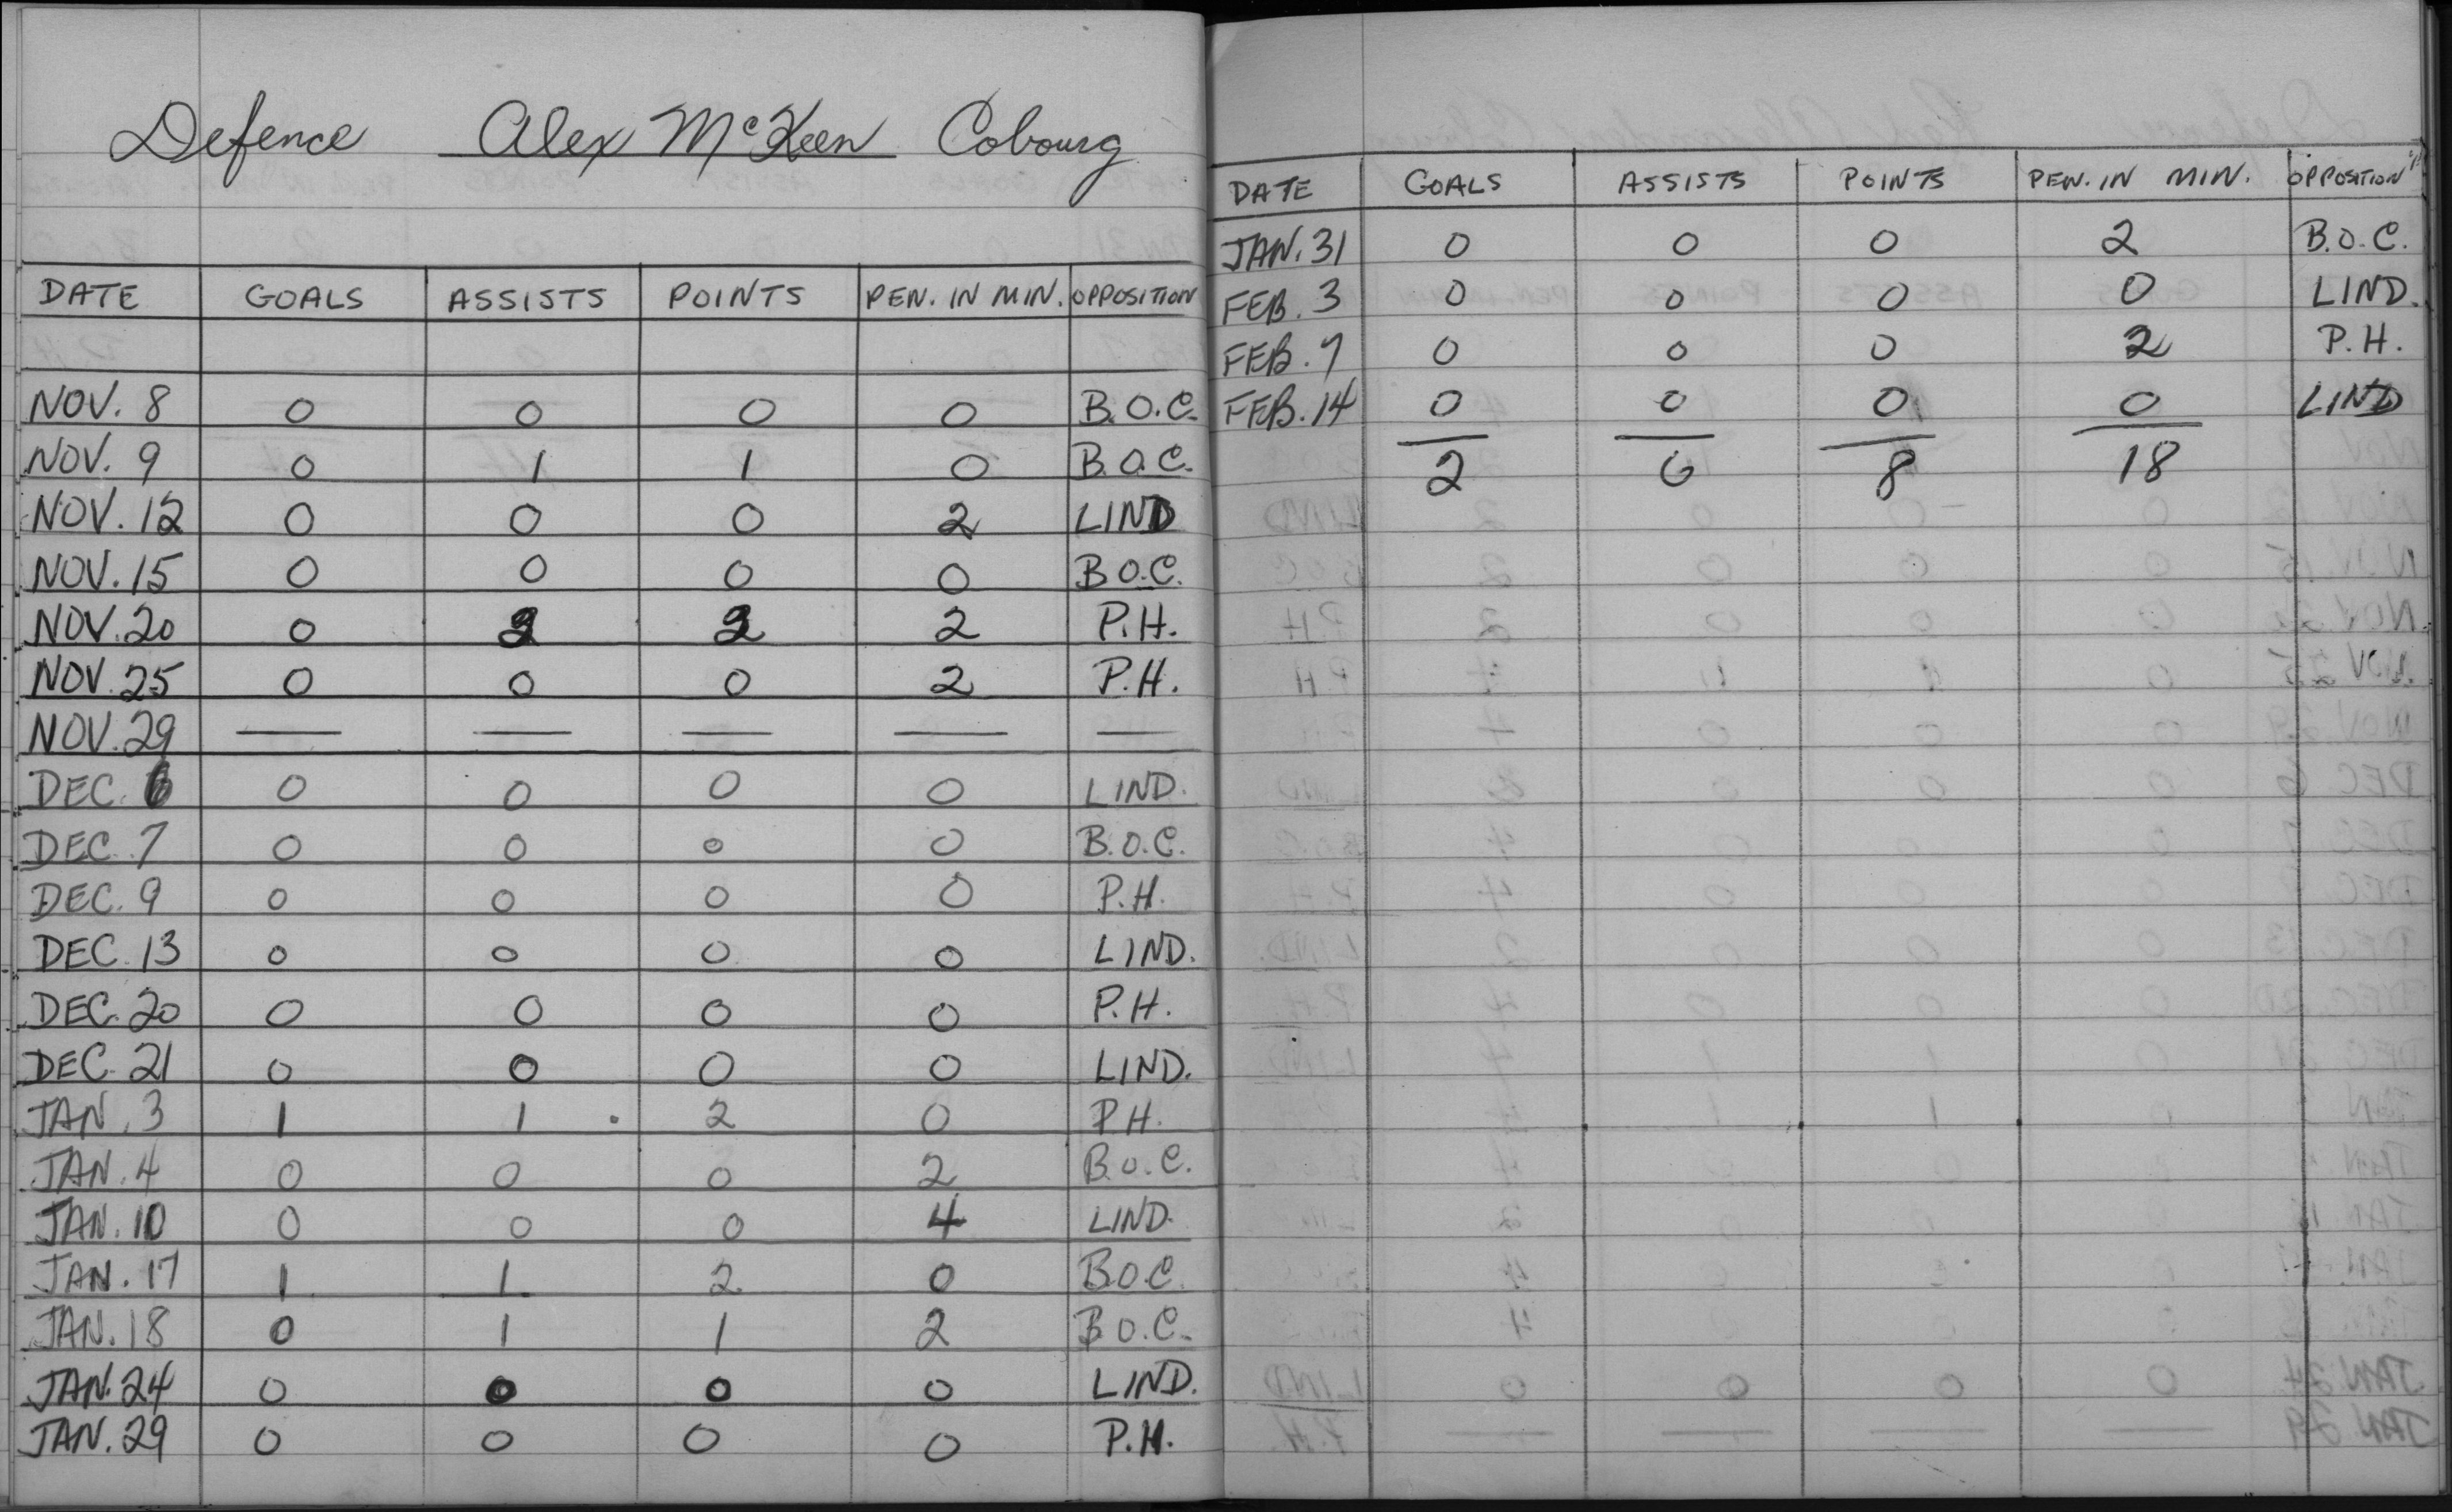 Defence Alex McKeen Cobourg
DATE GOALS ASSISTS POINTS PEN. IN MIN. OPPOSITION
NOV. 8 0 0 0 0 B.O.C.
NOV. 9 0 1 1 0 B.O.C.
NOV. 12 0 0 0 2 LIND
NOV. 15 0 0 0 0 B.O.C.
NOV. 20 0 2 2 2 P.H.
NOV. 25 0 0 0 2 P.H.
NOV. 29 — — — — —
DEC. 6 0 0 0 0 LIND.
DEC. 7 0 0 0 0 B.O.C.
DEC. 9 0 0 0 0 P.H.
DEC. 13 0 0 0 0 LIND.
DEC. 20 0 0 0 0 P.H.
DEC. 21 0 0 0 0 LIND.
JAN. 3 1 1 2 0 P.H.
JAN. 4 0 0 0 2 B.O.C.
JAN. 10 0 0 0 4 LIND.
JAN. 17 1 1 2 0 B.O.C.
JAN. 18 0 1 1 2 B.O.C.
JAN. 24 0 0 0 0 LIND.
JAN. 29 0 0 0 0 P.H.
DATE GOALS ASSISTS POINTS PEN. IN MIN. OPPOSITION
JAN. 31 0 0 0 2 B.O.C.
FEB. 3 0 0 0 0 LIND.
FEB. 7 0 0 0 2 P.H.
FEB. 14 0 0 0 0 LIND
2 6 8 18